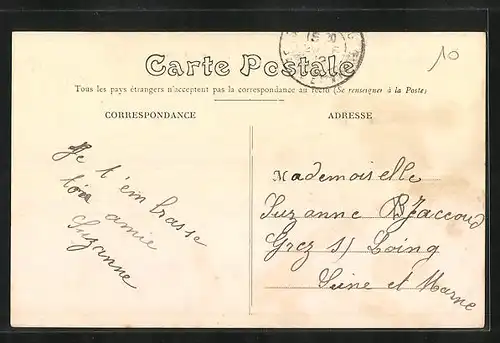 10
Carte Postale
Tous les pays étrangers n'acceptent pas la correspondance au recto (Se renseigner à la Poste)
CORRESPONDANCE
ADRESSE
Je t'embrasse
ton amie
Suzanne
Mademoiselle
Suzanne Jaccoud
Grez s/ Loing
Seine et Marne